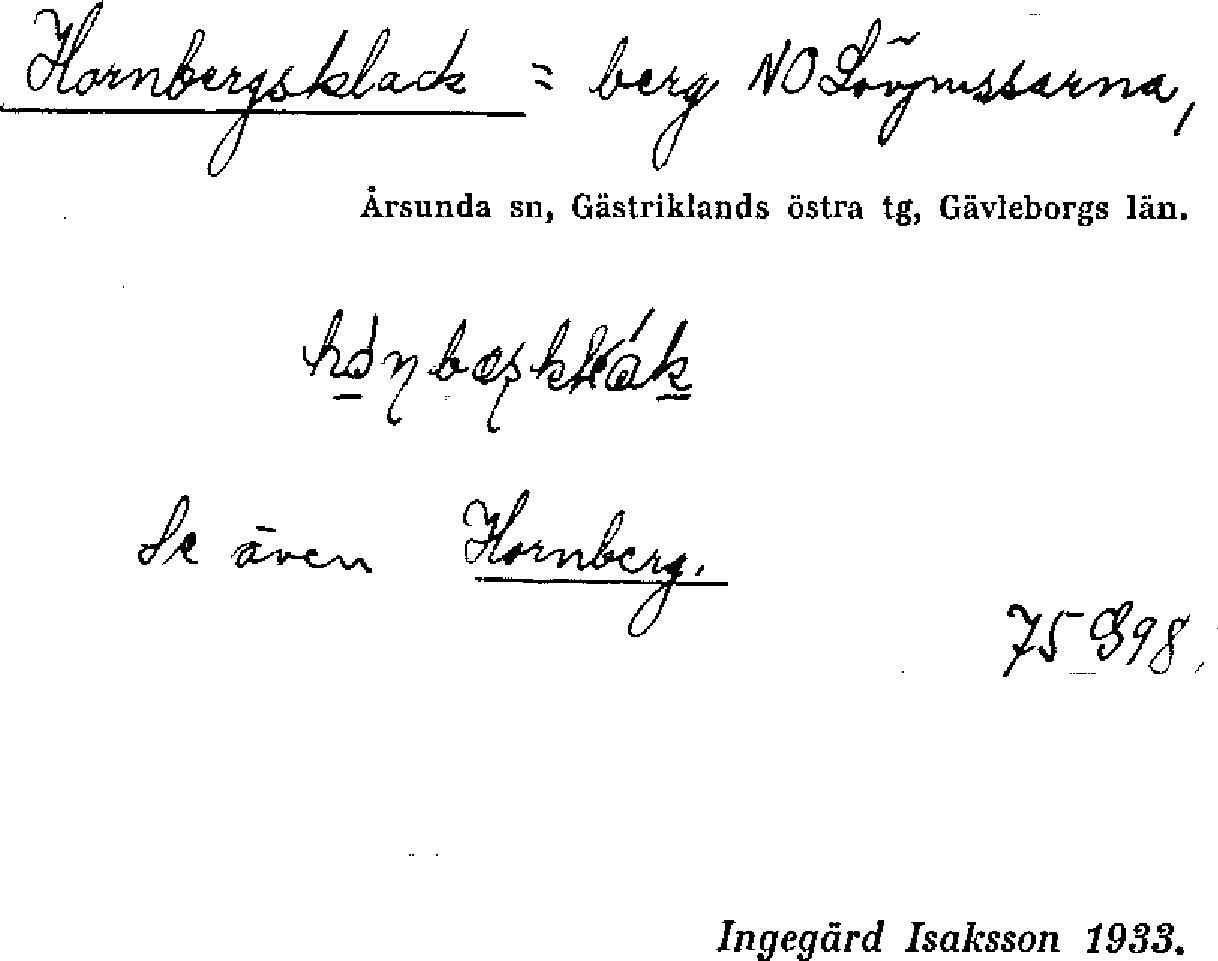 Hornbergsklack = berg NO Lövmossarna,
Årsunda sn, Gästriklands östra tg, Gävleborgs län.
Se även Hornberg.
75 S98.
Ingegärd Isaksson 1933.